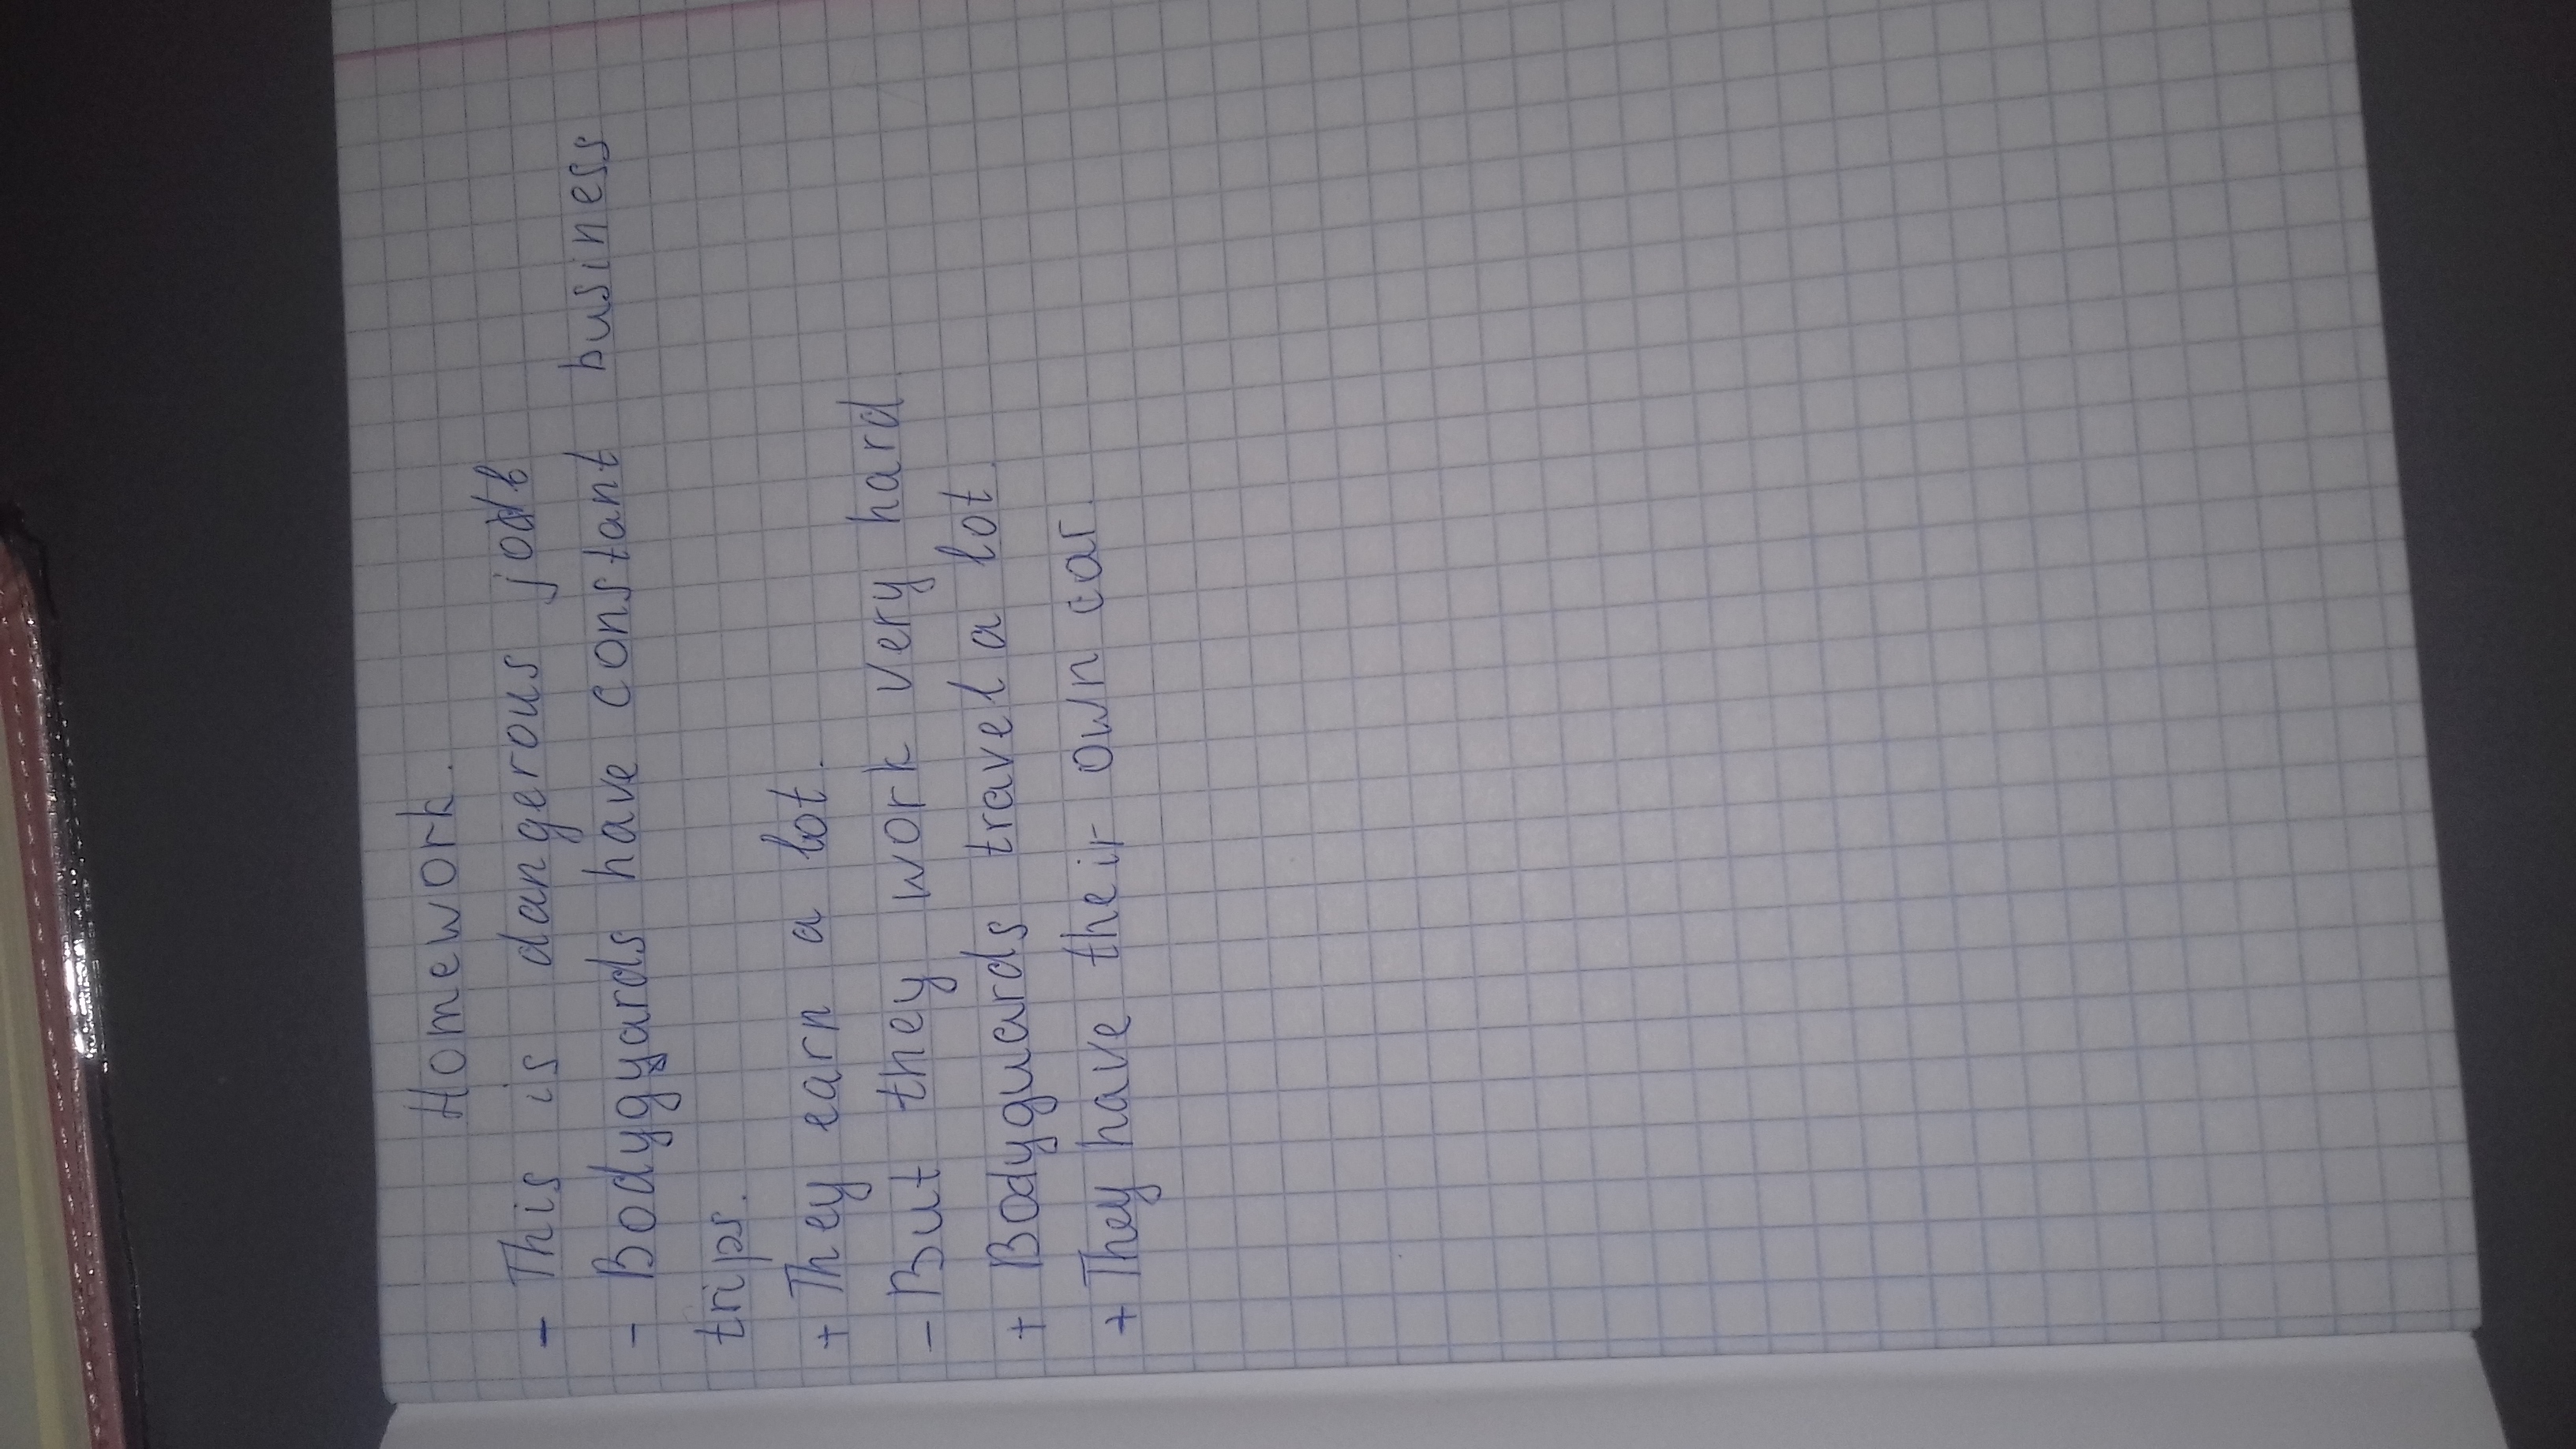 Homework.
- This is dangerous job
- Bodyguards have constant business
trips.
+ They earn a lot.
- But they work very hard
+ Bodyguards travel a lot.
+ They have their own car.